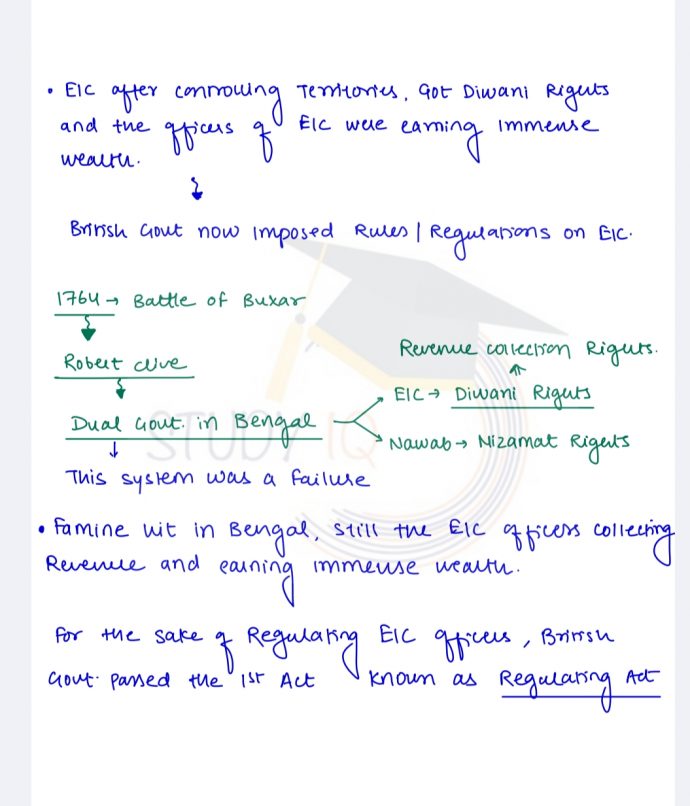 • EIC after controlling Territories, Got Diwani Rights
and the officers of EIC were earning immense
wealth.
British Govt now imposed Rules / Regulations on EIC.
1764 → Battle of Buxar
Robert Clive
Revenue collection Rights.
EIC → Diwani Rights
Dual Govt. in Bengal
Nawab → Nizamat Rights
STUDY IQ
This system was a failure
• Famine hit in Bengal, still the EIC officers collecting
Revenue and earning immense wealth.
For the sake of Regulating EIC officers, British
Govt. passed the 1st Act known as Regulating Act